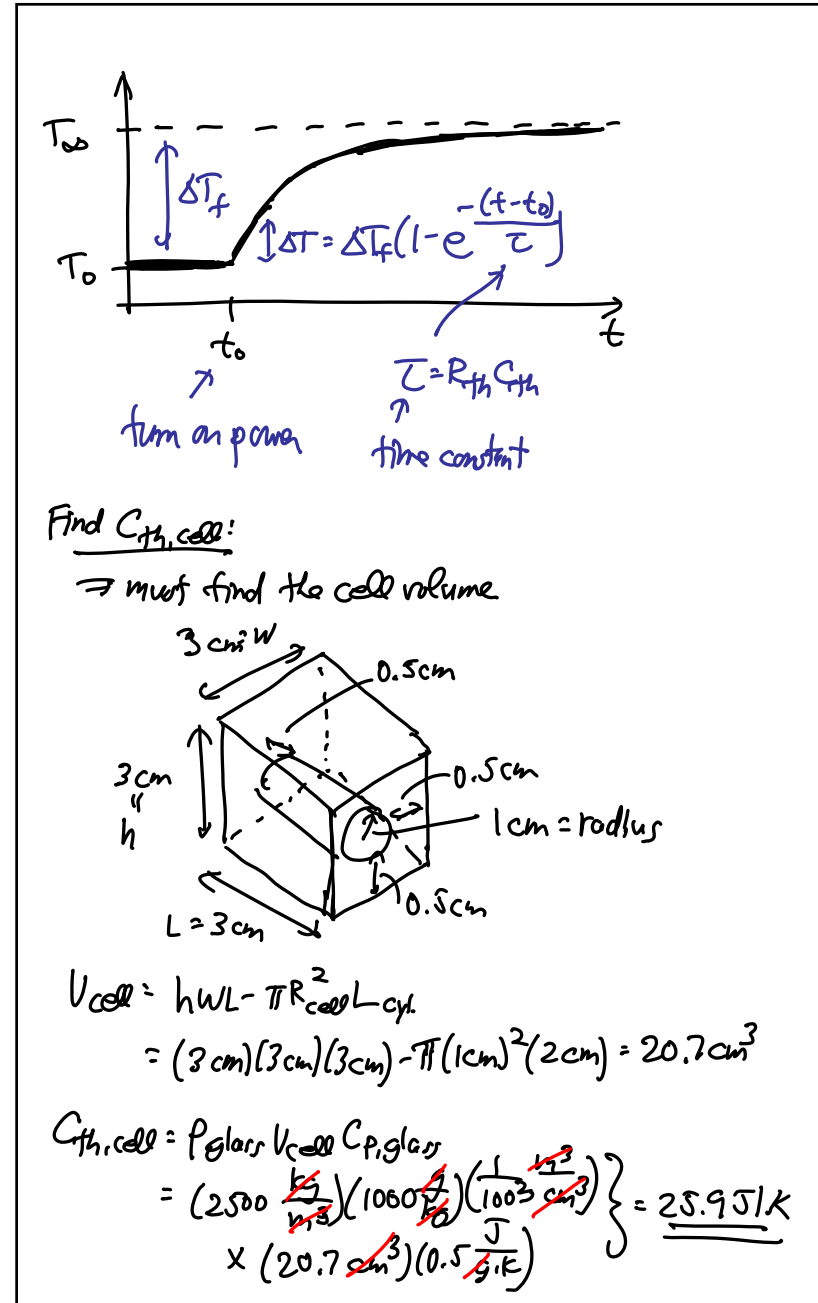 T∞
ΔT_f
ΔT = ΔT_f(1-e^{-(t-t₀)/τ})
T₀
t₀
t
τ = R_th C_th
turn on power
time constant
Find C_th,cell:
⇒ must find the cell volume
3 cm = W
0.5cm
3 cm
"
h
0.5cm
1cm = radius
0.5cm
L = 3cm
V_cell = hWL - πR²_cell L_cyl.
= (3 cm)(3cm)(3cm) - π(1cm)²(2cm) = 20.7cm³
C_th,cell = ρ_glass V_cell C_P,glass
= (2500 kg/m³)(1000 g/kg)(1/100³ m³/cm³) } = 25.9 J/K
× (20.7 cm³)(0.5 J/g·K)